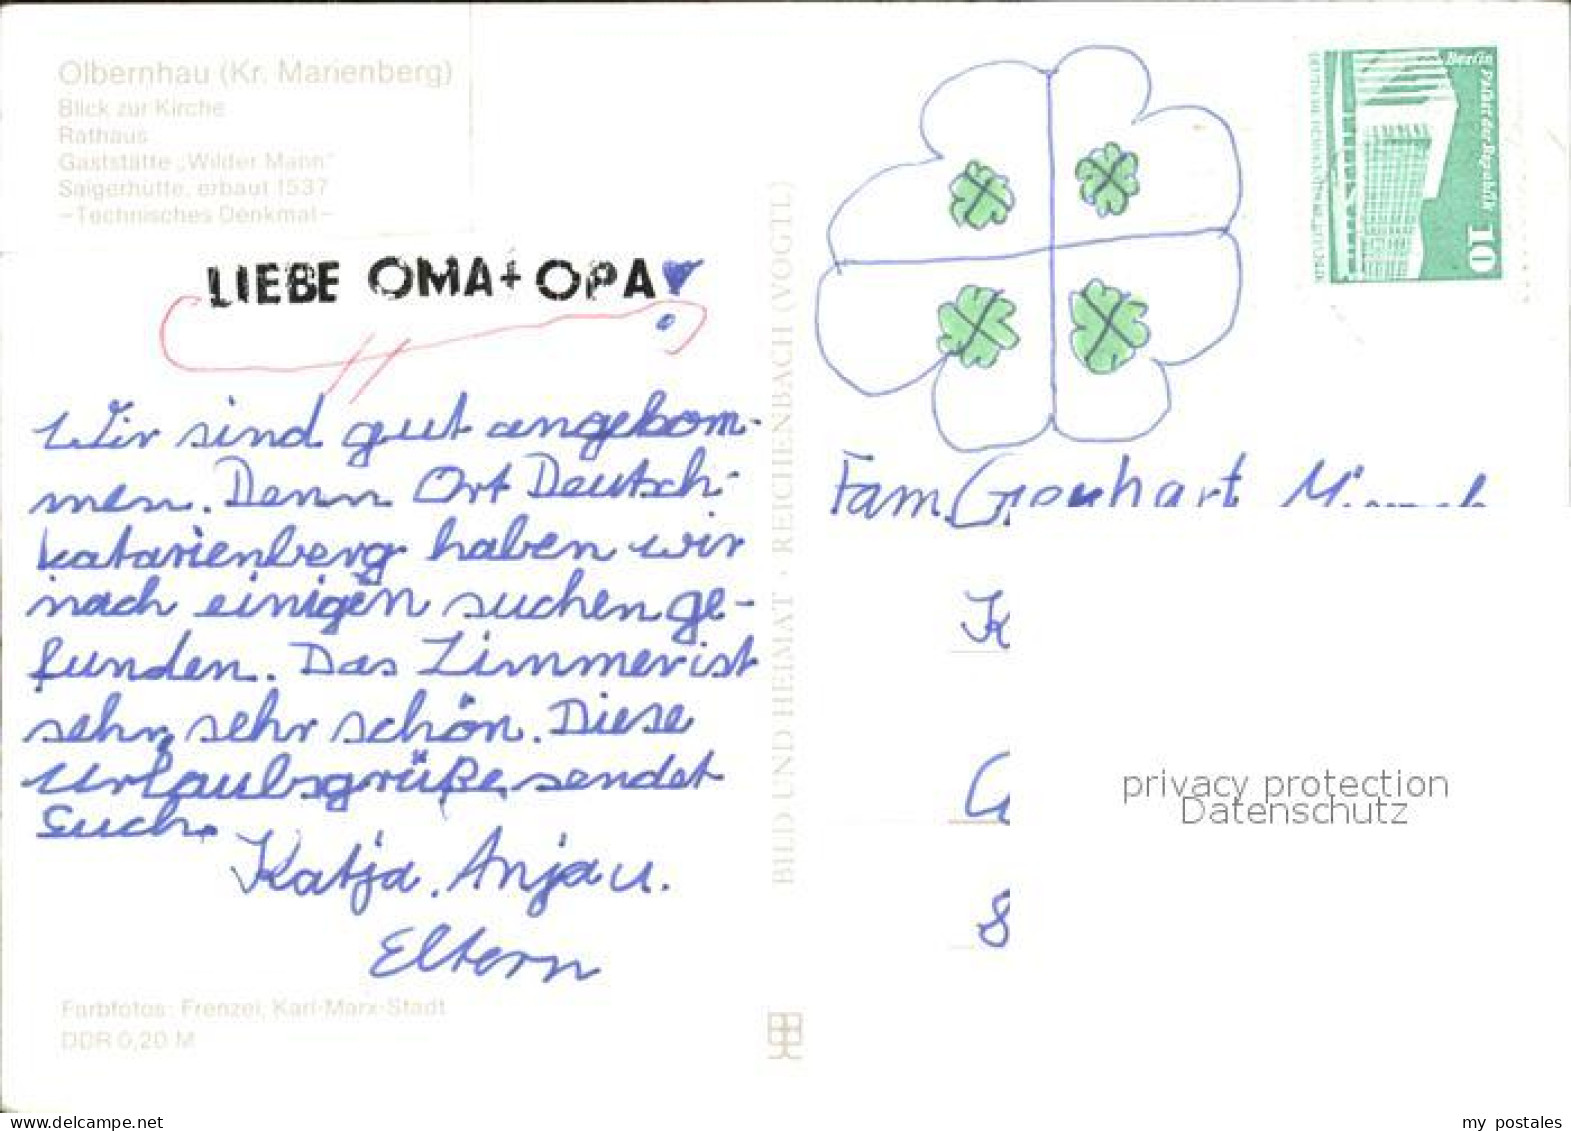 Olbernhau (Kr. Marienberg)
Blick zur Kirche
Rathaus
Gaststätte „Wilder Mann"
Saigerhütte, erbaut 1537
–Technisches Denkmal–
LIEBE OMA+OPA!
Wir sind gut angekom-
men. Denn Ort Deutsch-
katarienberg haben wir
nach einigen suchen ge-
funden. Das Zimmer ist
sehr, sehr schön. Diese
Urlaubsgrüße sendet
Euch.
Katja, Anja u.
Eltern
Farbfotos: Frenzel, Karl-Marx-Stadt
DDR 0,20 M
BILD UND HEIMAT · REICHENBACH (VOGTL)
Berlin Palast der Republik
10
DEUTSCHE DEMOKRATISCHE REPUBLIK
Fam.
K
8
privacy protection
Datenschutz
my postales